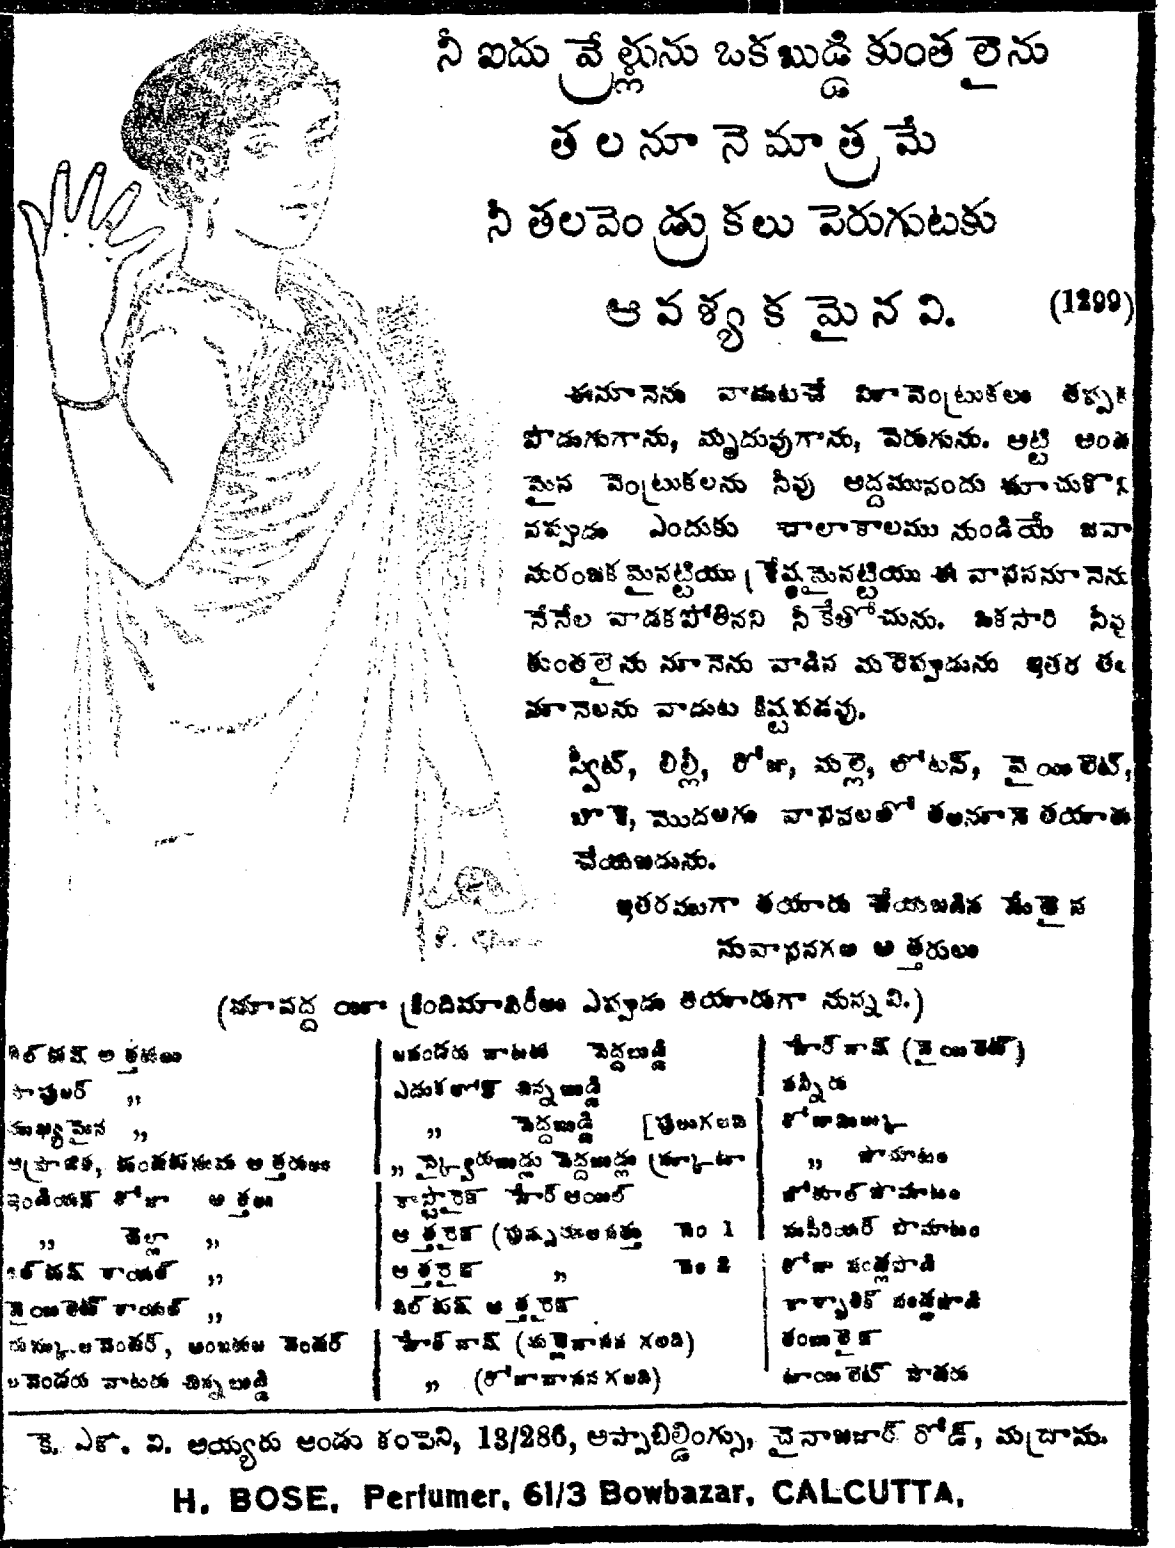 నీ ఐదు వ్రేళ్లును ఒకబుడ్డి కుంతలైను
తలనూనెమాత్రమే
నీ తలవెండ్రుకలు పెరుగుటకు
ఆవళ్యకమైనవి. (1299)
ఈనూనెను వాడుటచే నీకా వెంట్రుకలు తప్పక
పొడుగుగాను, మృదువుగాను, పెరుగును. అట్టి అంద
మైన వెంట్రుకలను నీవు అద్దమునందు చూచుకొన
నప్పుడు ఎందుకు చాలాకాలము నుండియే జనా
నురంజకమైనట్టియు శ్రేష్ఠమైనట్టియు ఈ వాసననూనెను
నేనేల వాడకపోతినని నీకేతోచును. ఒకసారి నీవు
కుంతలైను నూనెను వాడిన మరెప్పుడును ఇతర తల
నూనెలను వాడుట కిష్టపడవు.
స్వీట్, లిల్లీ, రోజా, మల్లె, లోటస్, వైయిలెట్,
బొకే, మొదలగు వాసనలతో తలనూనె తయారు
చేయబడును.
ఇతరములుగా తయారు చేయబడిన మేలైన
సువాసనగల అత్తరులు
(మావద్ద యీ క్రిందిమాదిరీలు ఎప్పుడు తయారుగా నున్నవి.)
దిల్ కుష్ అత్తరులు
పాపులర్ „
ముఖ్యమైన „
ఇండియన్ రోజా అత్తరు
„ బెల్లా „
దిల్ కుష్ రాయల్ „
వైయిలెట్ రాయల్ „
లవెండర్ వాటరు చిన్నబుడ్డి
లవండరు వాటరు పెద్దబుడ్డి
ఎదుకలోన్ చిన్నబుడ్డి
„ పెద్దబుడ్డి
కాస్టారైన్ హేర్ ఆయిల్
అత్తరైన్ „ నెం 2
దిల్ కుష్ అత్తరైన్
హేర్ వాష్ (మల్లెవాసన గలది)
„ (రోజావాసనగలది)
హేర్ వాష్ (వైయిలెట్)
పన్నీరు
రోజామిల్కు
„ పొమాటం
గోకూల్ పొమాటం
సుపీరియర్ పొమాటం
రోజా పండ్లపొడి
కార్బాలిక్ పండ్లపొడి
తంబులైన్
టాయిలెట్ పౌడరు
కె. ఎస్. వి. అయ్యరు అండు కంపెని, 13/286, అప్పాబిల్డింగ్సు, చైనాబజార్ రోడ్, మద్రాసు.
H. BOSE, Perfumer, 61/3 Bowbazar, CALCUTTA,